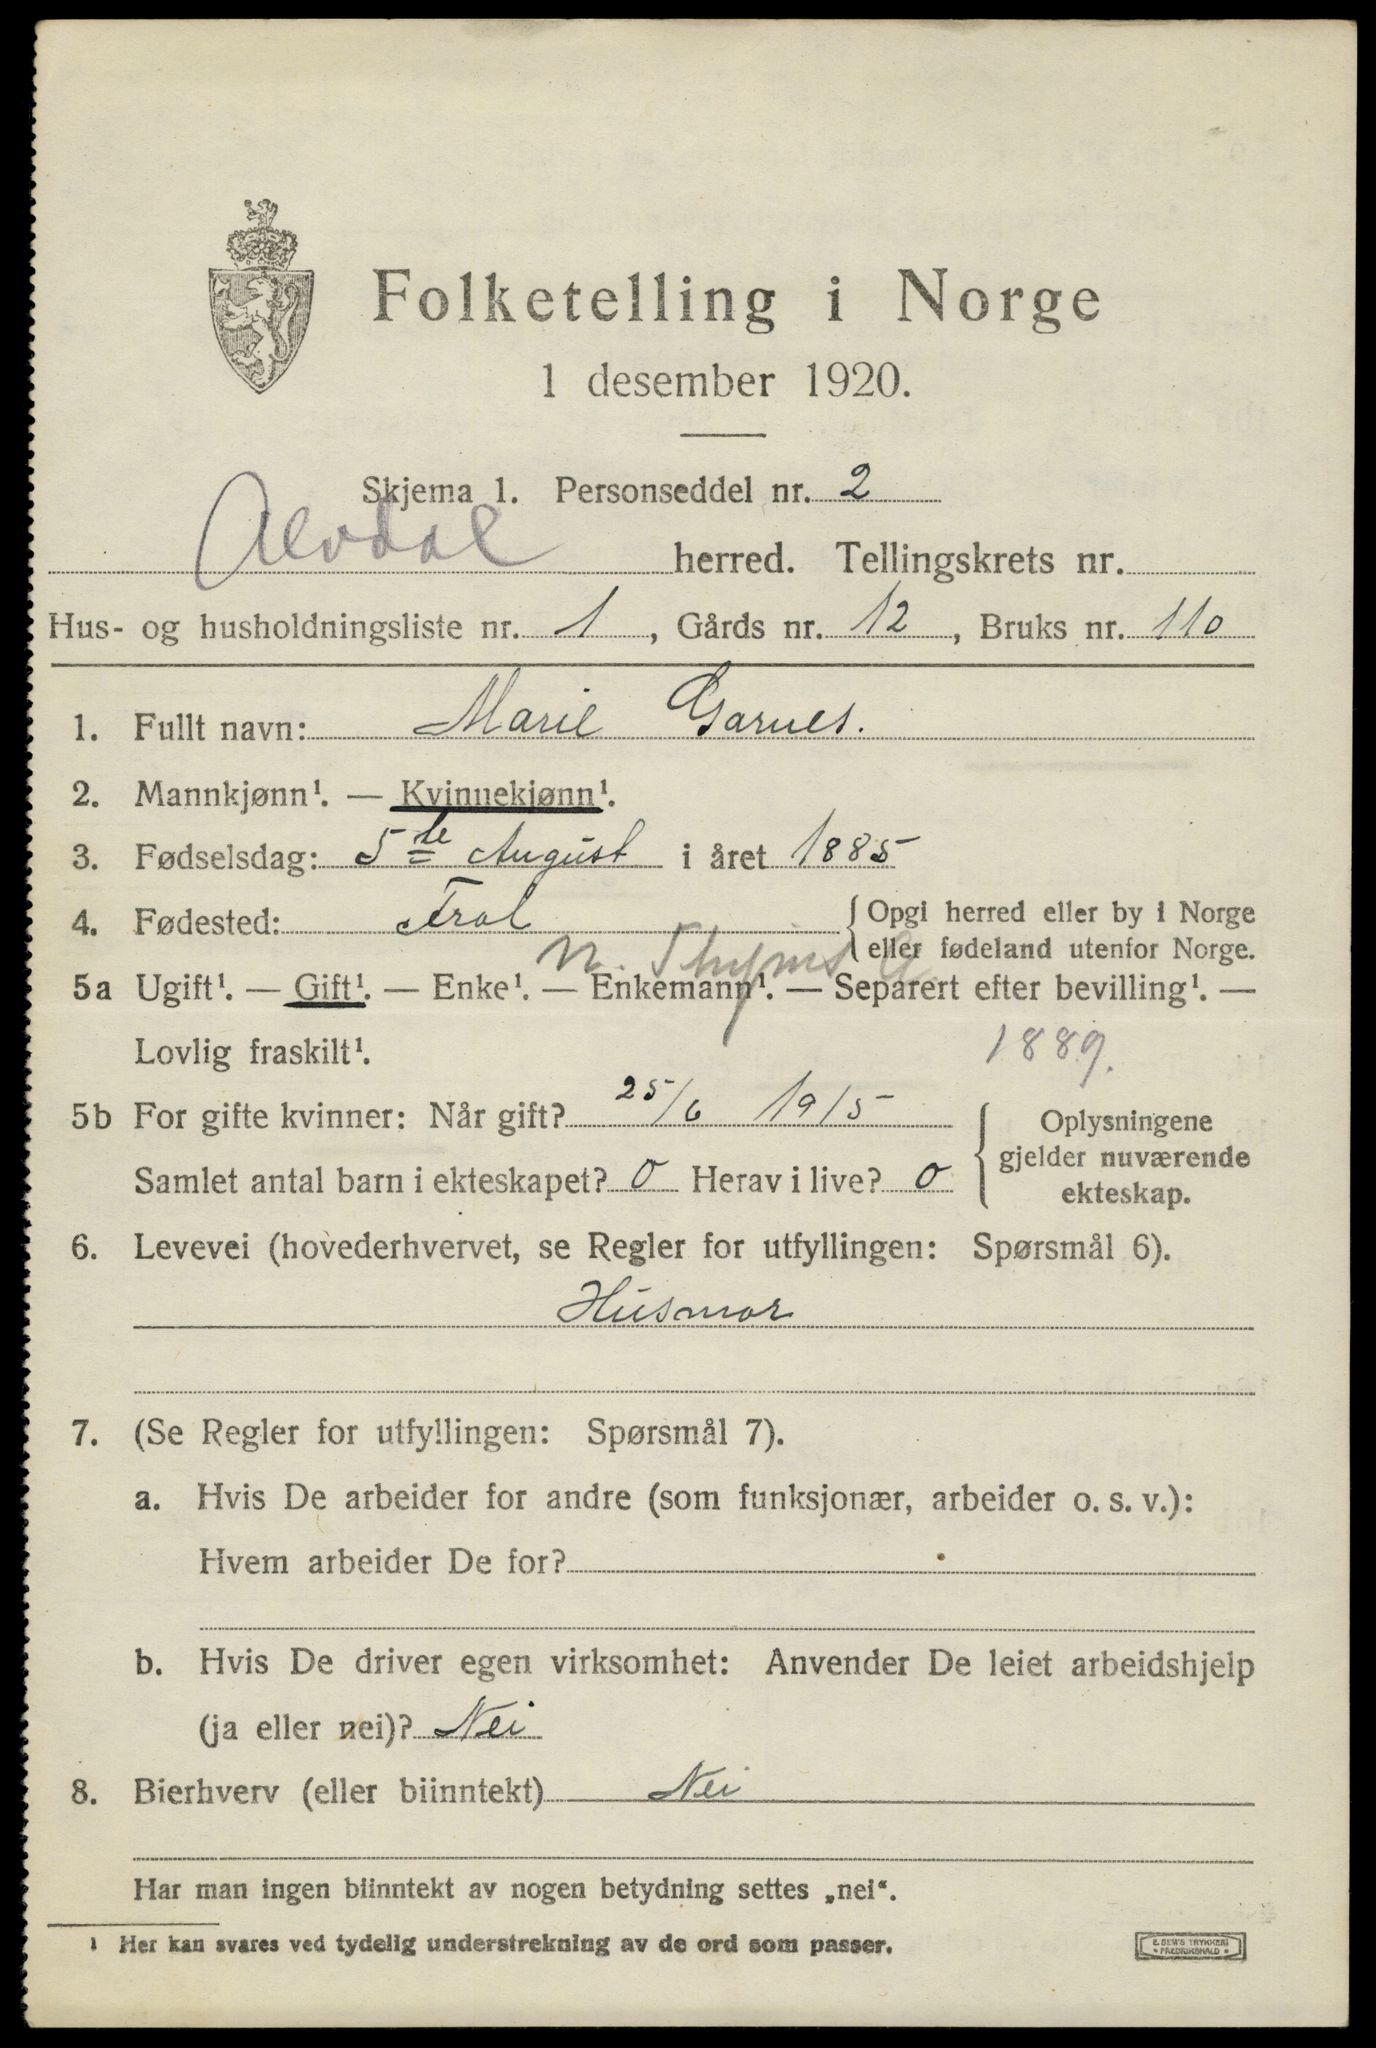 Folketelling i Norge
1 desember 1920.
Skjema 1. Personseddel nr. 2
Alvdal herred. Tellingskrets nr.
Hus- og husholdningsliste nr. 1, Gårds nr. 12, Bruks nr. 110
1. Fullt navn: Marie Garnes.
2. Mannkjønn¹. — Kvinnekjønn¹.
3. Fødselsdag: 5te August i året 1885
4. Fødested: Frol { Opgi herred eller by i Norge
eller fødeland utenfor Norge.
N.
5a Ugift¹. — Gift¹. — Enke¹. — Enkemann¹. — Separert efter bevilling¹. —
Lovlig fraskilt¹. 1889.
5b For gifte kvinner: Når gift? 25/6 1915 { Oplysningene
gjelder nuværende
Samlet antal barn i ekteskapet? 0 Herav i live? 0 ekteskap.
6. Levevei (hovederhvervet, se Regler for utfyllingen: Spørsmål 6).
Husmor
7. (Se Regler for utfyllingen: Spørsmål 7).
a. Hvis De arbeider for andre (som funksjonær, arbeider o. s. v.):
Hvem arbeider De for?
b. Hvis De driver egen virksomhet: Anvender De leiet arbeidshjelp
(ja eller nei)? Nei
8. Bierhverv (eller biinntekt) Nei
Har man ingen biinntekt av nogen betydning settes „nei“.
¹ Her kan svares ved tydelig understrekning av de ord som passer.
E. SEM'S TRYKKERI
• FREDRIKSHALD •